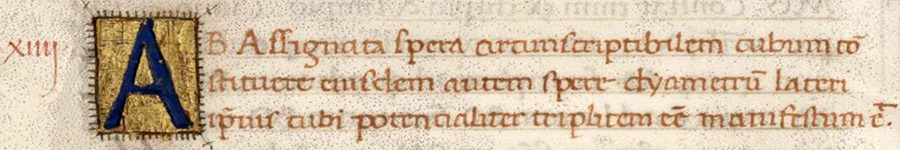 xiiij. AB Assignata spera circunscriptibilem cubum cō
stituere eiusdem autem spere dyametrū lateri
ip̄ius cubi potencialiter triplicem eē manifestum ē.